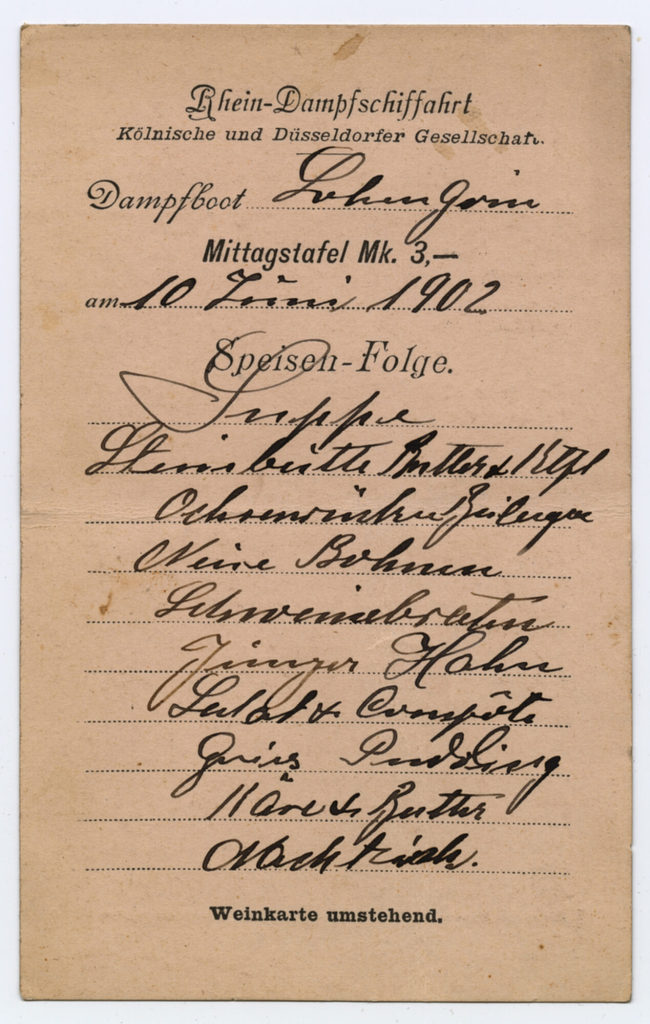 Rhein-Dampfschiffahrt
Kölnische und Düsseldorfer Gesellschaft.
Dampfboot Lohengrin
Mittagstafel Mk. 3,—
am 10 Juni 1902
Speisen-Folge.
Suppe
Steinbutte Butter & Ktfl
Ochsenrücken Beilagen
Neue Bohnen
Schweinebraten
Junger Hahn
Salat & Compôte
Gries Pudding
Käse & Butter
Nachtisch.
Weinkarte umstehend.